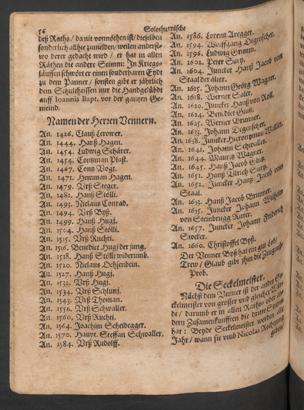 56 Solothurnische
deß Raths / da nit vonnöthen ist / dieselben
sonderlich allhie zumelden / weilen anderst-
wo derer gedacht wird / er hat in allen
Räthen die andere Stimm: In Kriegs-
läuffen schwört er einen sonderbaren Eydt
zu dem Panner / sonsten gibt er jährlich
dem Schultheissen nur die Handgelübd
auff Ioannis Bapt. vor der gantzen Ge-
meind.
Namen der Herren Vennern.
An. 1426. Clauß
An. 1444. Hanß Hagen.
An. 1454. Ludwig Schärer.
An. 1454. Contzman
An. 1467. Cont. Vogt.
An. 1471. Hemman Hagen.
An. 1479. Urß Steger.
An. 1481. Hanß Stölli.
An. 1493. Niclaus Conrad.
An. 1494. Urß
An. 1499. Hanß Hugi.
An. 1504. Hanß Stölli.
An. 1515. Urß Ruchti.
An. 1516. Benedict Hugi der jung.
An. 1518. Hanß Stölli widerumb.
An. 1520. Niclaus Ochsenbein.
An. 1527. Hanß Hugi.
An. Urß Hugi.
An. 1534. Urß Schluni.
An. 1543. Urß Thoman.
An. 1556. Urß Schwaller.
An. 1560. Urß Ruchti.
An. 1564. Joachim Scheidegger.
An. 1570. Hauptm. Steffan Schwaller.
An. 1584. Urß Rudolff.
An. 1586. Lorentz Aregger.
An. 1594. Wolffgang Degischer.
An. 1596. Ludwig Grimm.
An. 1602. Peter Sury.
An. 1614. Juncker Hanß Jacob vom
Staal der älter.
An. 1615. Johann Georg Wagner.
An. Juncker Hanß von Roll.
An. Benedict
An. 1625. Werner Brunner.
An. Johann Degenscher.
An. Juncker Hieronymus Wallier.
An. Johann Schwaller.
An. 1644. Mauritz Wagner.
An. 1645. Hanß Jacob
An. 1651. Hanß Ulrich Sury.
An. 1652. Juncker Hanß Jacob vom
Staal.
An. Hanß Jacob Brunner.
An. Juncker Johann Wilhelm
von Steinbrugg Ritter.
An. Juncker Johann Friderich
Stocker.
An. 1660. Christoffel Byß.
Der Venner Byß hat ein gut Lob /
Trew / Glaub gibt ihm die
Prob.
Die Seckelmeister.
Nächst dem Venner ist der andere
Seckelmeister von grosser und gleicher
de / darumb er in allen Räthen oder
dern Zusamenkunfften die dritte
hat: Beyde Seckelmeister werden alle
Jahr / wann sie vmb Nicolai Rechnung